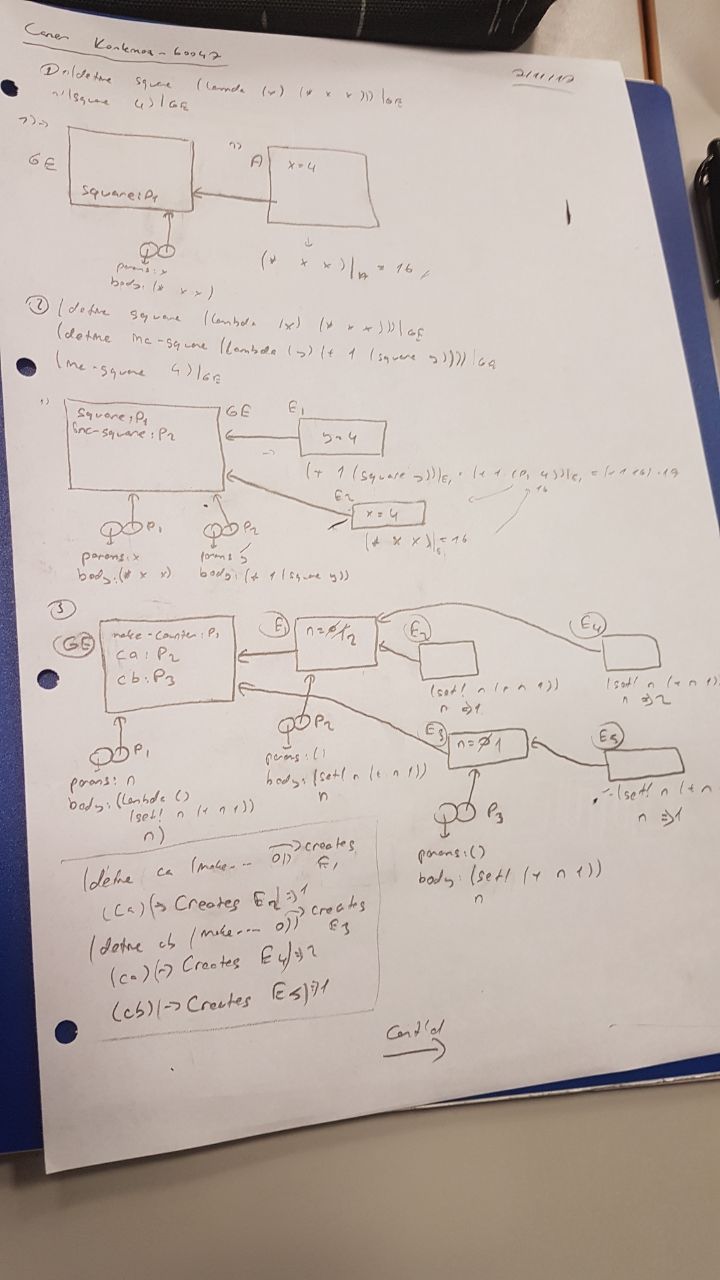 7/11/17
① (define square (lambda (x) (* x x)))|GE
(square 4)|GE
GE
square: P1
A
x=4
params: x
body: (* x x)
(* x x)|A = 16
② (define square (lambda (x) (* x x)))|GE
(define inc-square (lambda (y) (+ 1 (square y))))|GE
(inc-square 4)|GE
square: P1
inc-square: P2
GE
E1
y=4
(+ 1 (square y))|E1 = (+ 1 (P1 4))|E1 = (+ 1 16) = 17
16
E2
x=4
(* x x)| = 16
P1
P2
params: x
params: y
body: (* x x)
body: (+ 1 (square y))
③
GE
make-counter: P1
ca: P2
cb: P3
E1
n=0 1 2
E2
(set! n (+ n 1))
n ⇒ 1
E4
(set! n (+ n 1)
n ⇒ 2
P1
params: n
body: (lambda ()
(set! n (+ n 1))
n)
P2
params: ()
body: (set! n (+ n 1))
n
E3
n=0 1
E5
(set! n (+ n
n ⇒ 1
P3
params: ()
body: (set! (+ n 1))
n
(define ca (make--- 0)) → creates
E1
(ca) (→ Creates E2) ⇒ 1
(define cb (make--- 0)) → creates
E3
(ca) (→ Creates E4) ⇒ 2
(cb) (→ Creates E5) ⇒ 1
Cont'd